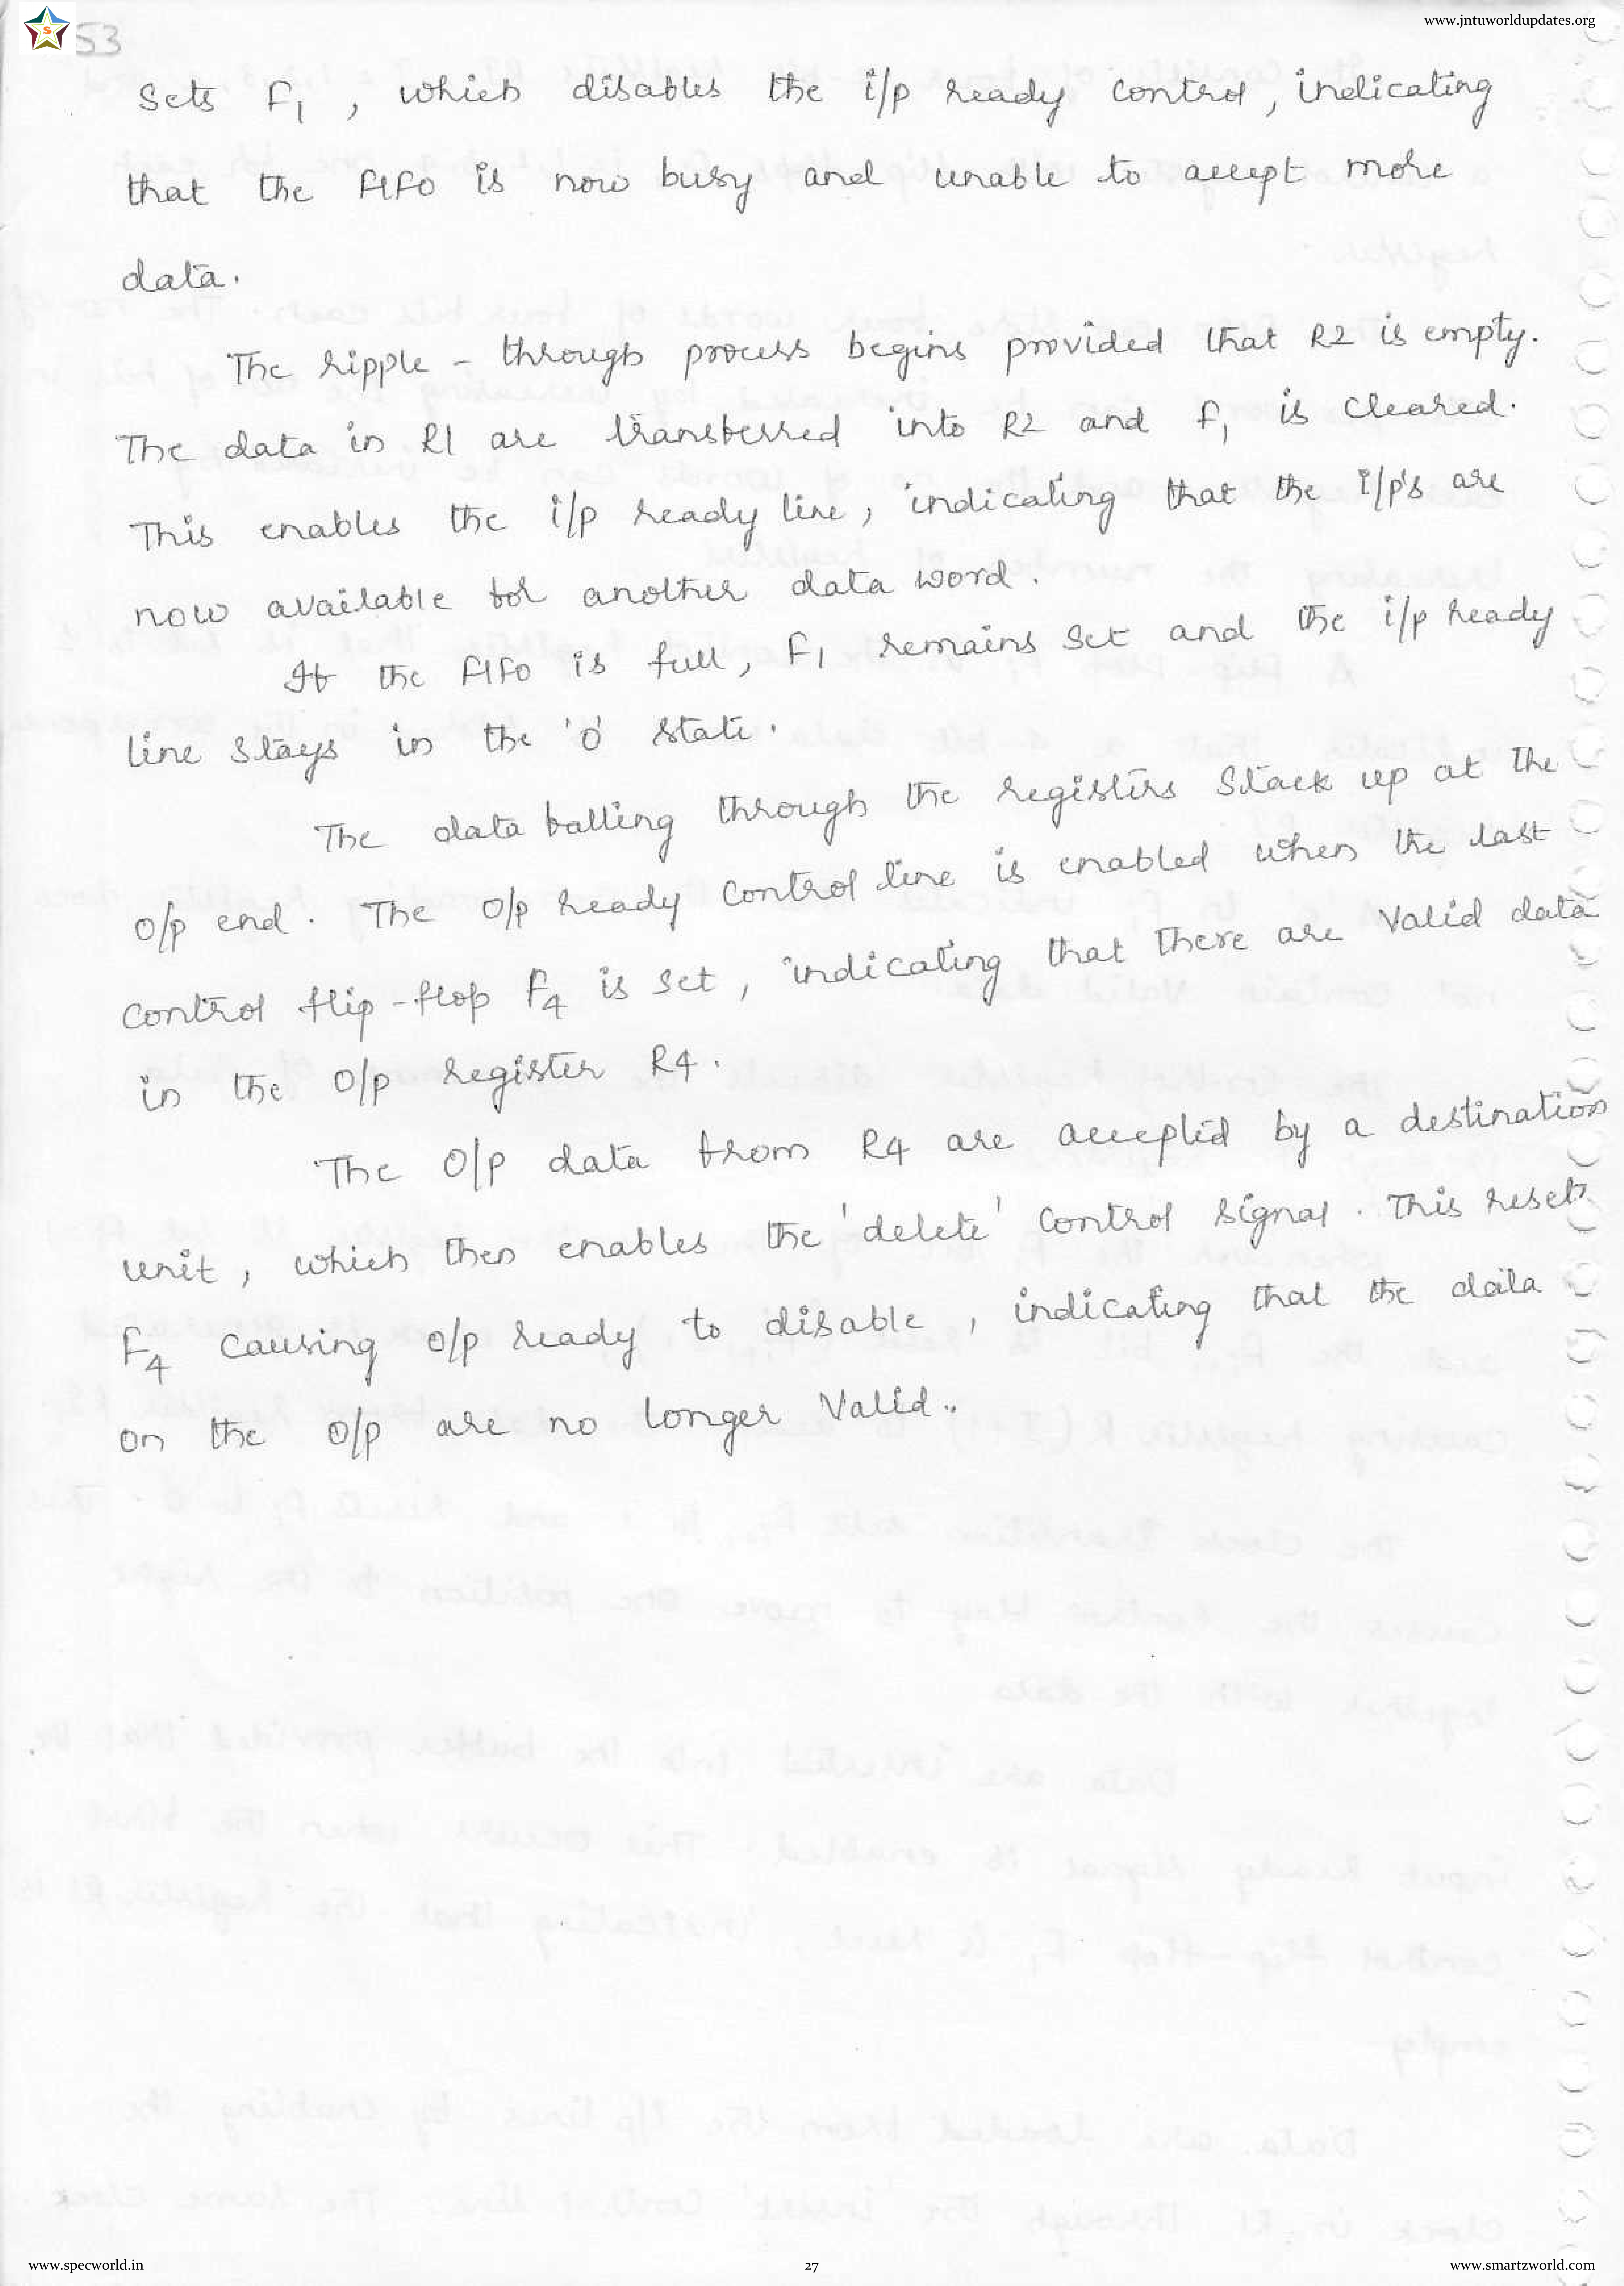 www.jntuworldupdates.org
S
53
Sets F1 , which disables the i/p ready control, indicating
that the FIFO is now busy and unable to accept more
data.
The ripple - through process begins provided that R2 is empty.
The data in R1 are transferred into R2 and F1 is cleared.
This enables the i/p ready line, indicating that the I/p's are
now available for another data word.
If the FIFO is full, F1 remains set and the i/p ready
line stays in the 'o' state.
The data falling through the registers stack up at the
o/p end. The o/p ready control line is enabled when the last
control flip-flop F4 is set, indicating that there are valid data
in the o/p register R4.
The o/p data from R4 are accepted by a destination
unit, which then enables the 'delete' control signal. This resets
F4 causing o/p ready to disable, indicating that the data
on the o/p are no longer valid..
www.specworld.in
27
www.smartzworld.com